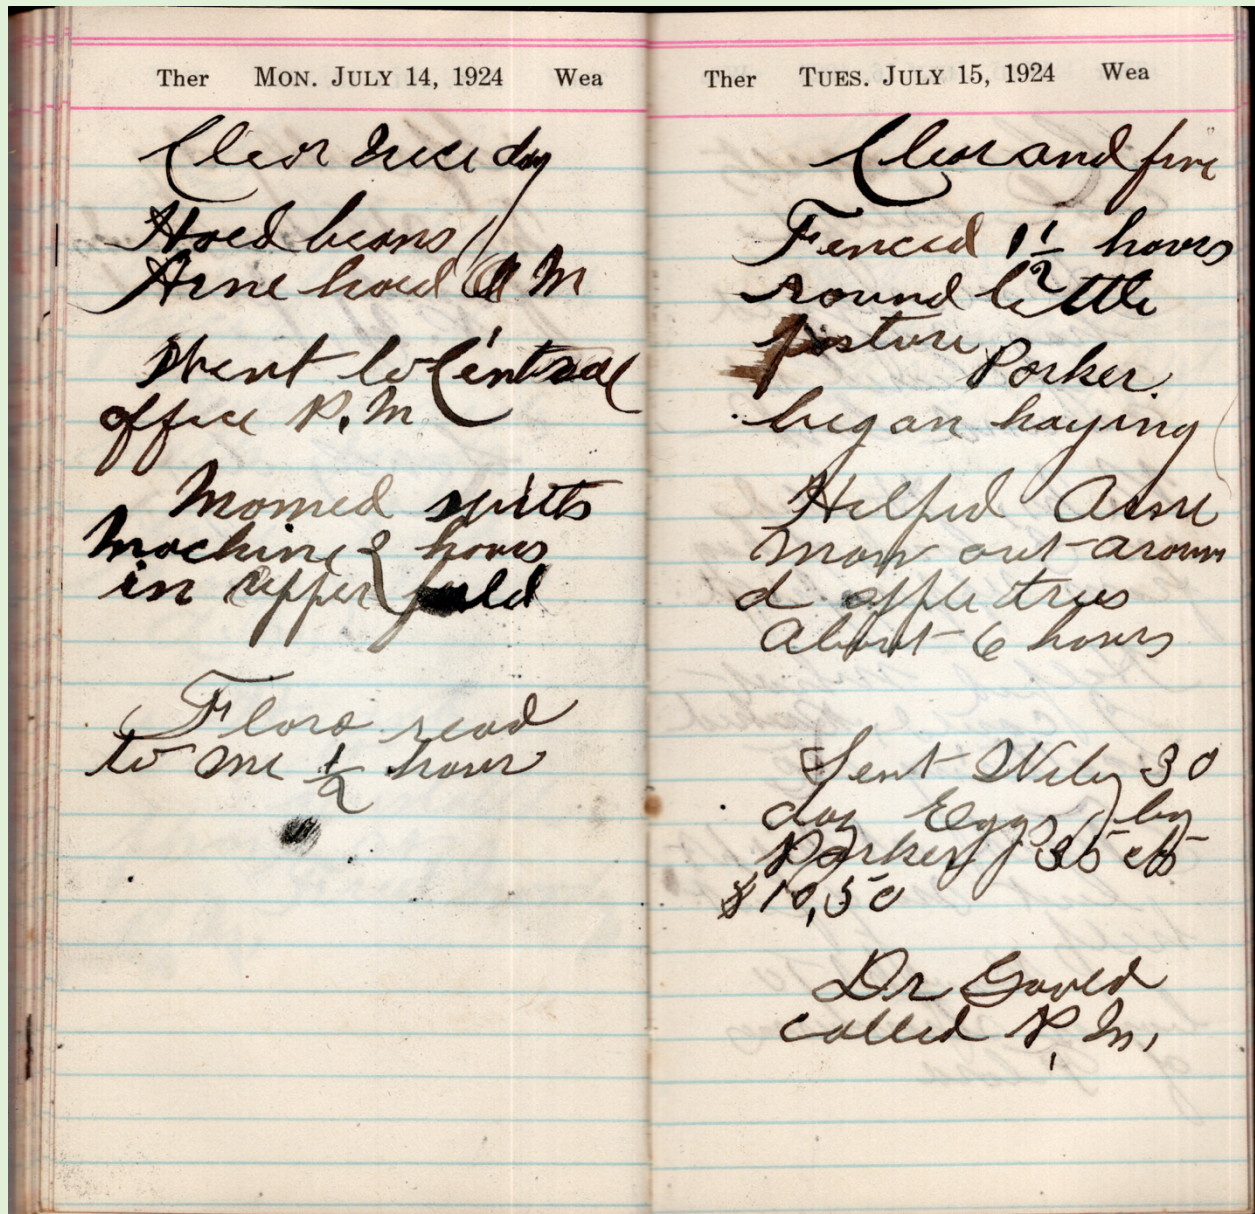 Ther MON. JULY 14, 1924 Wea
Clear Nice day
Hoed beans
Arne hoed A M
Went to Central
office P.M
Momed
machine 2 hours
in upper field
Flora read
to me 1/2 hour
Ther TUES. JULY 15, 1924 Wea
Clear and fine
Fenced 1 1/2 hours
round little
pasture Parker
began haying
Helped Arne
mow out aroun
d apple trees
About 6 hours
Sent Wiley 30
doz Eggs by
Parker 35 cts
$10,50
Dr Gould
called P.M.